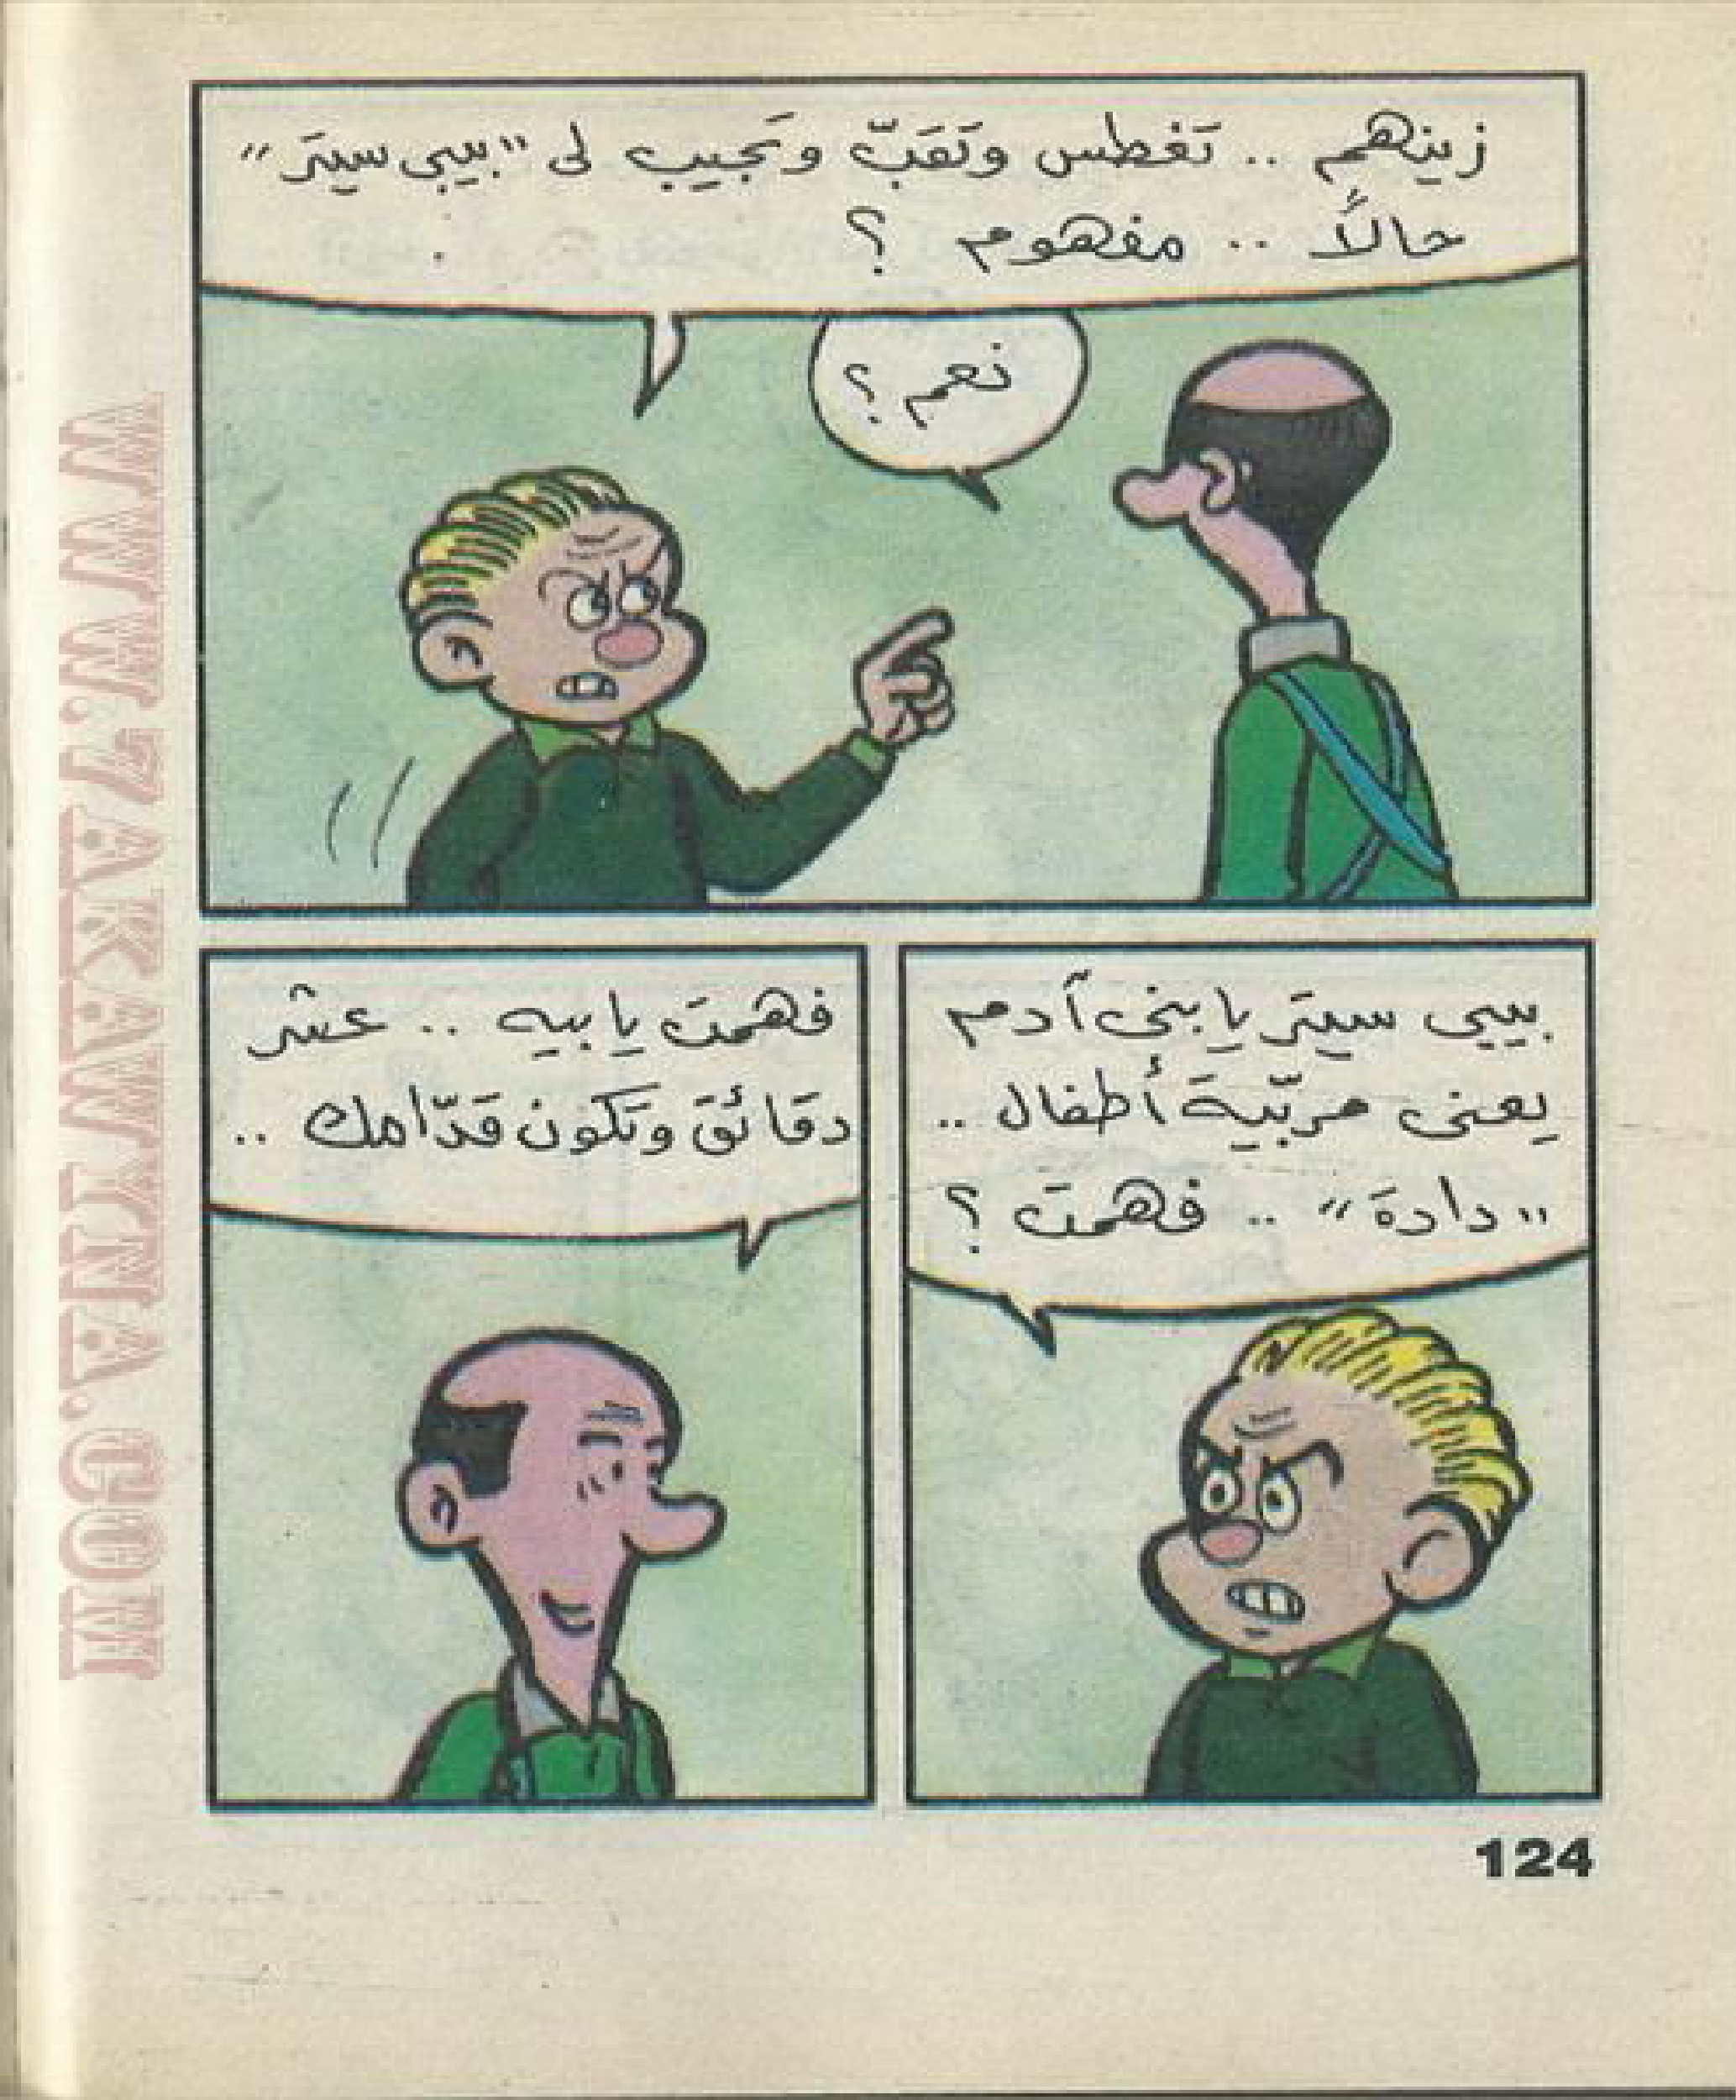 زينهم .. تَغطس وتَقبّ وتَجيب لى "بيبى سيتَر"
حالاً .. مفهوم ؟
نعم ؟
بيبى سيتَر يا بنى آدم
يعنى مربّية أطفال ..
"دادة" .. فهمتَ ؟
فهمتَ يا بيه .. عشر
دقائق وتَكون قدّامك ..
124
WWW.7AKAWITNA.COM